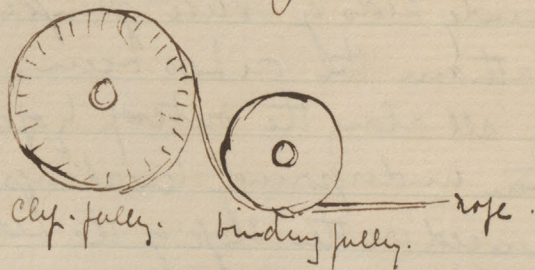 clip-pulley.
binding pulley.
rope.